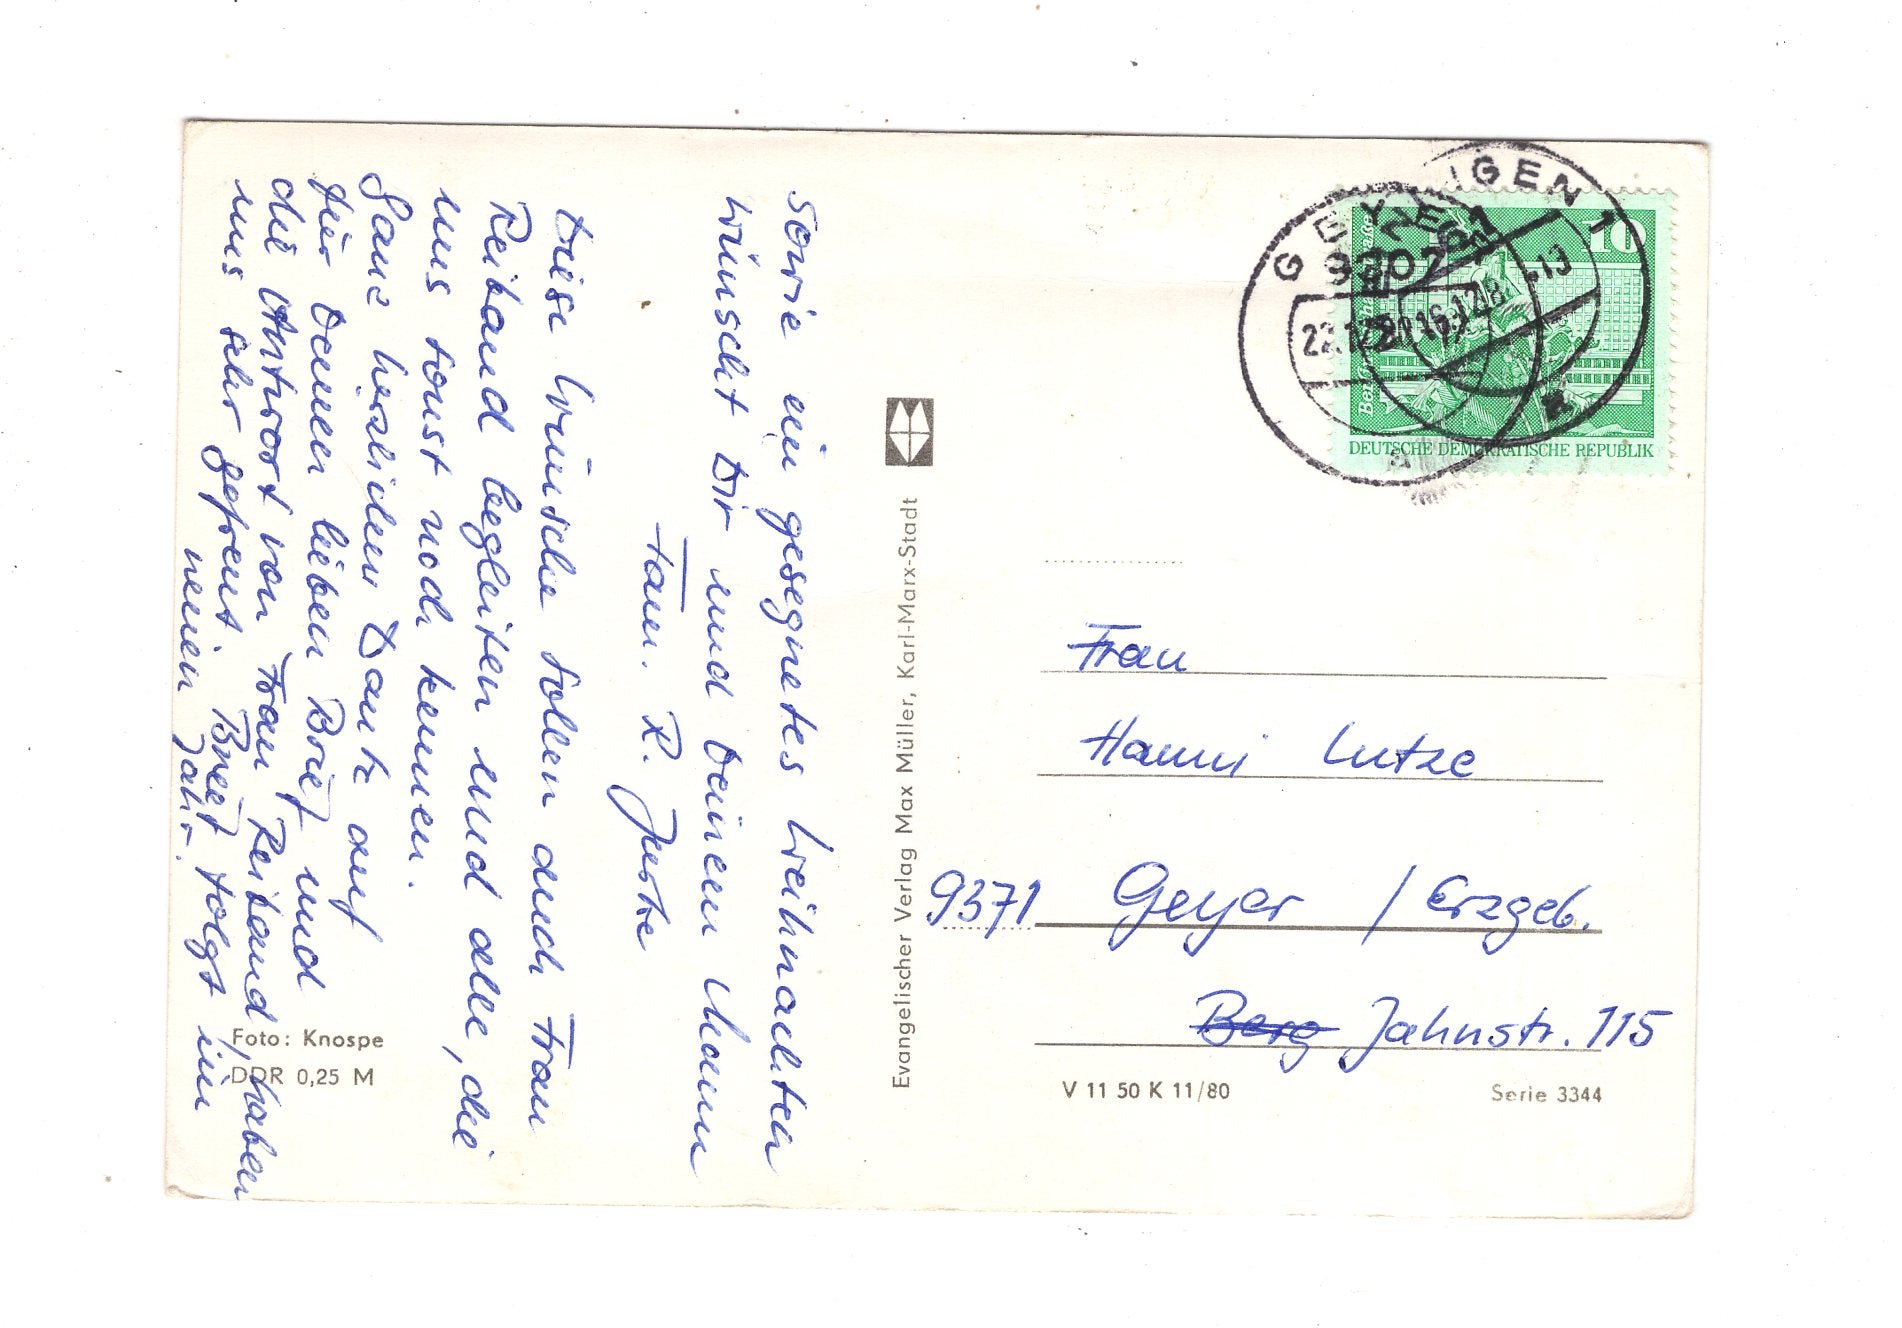 sowie ein gesegnetes Weihnachten
wünscht Dir und Deinem Mann
Fam. R. Juste
Diese Wünsche sollen auch Frau
Reiband begleiten und alle, die
uns sonst noch kennen.
Ganz herzlichen Dank auf
für Deinen lieben Brief und
die Antwort von Frau Reiband, haben
uns sehr gefreut. Brief folgt im
neuen Jahr.
Foto: Knospe
DDR 0,25 M
Evangelischer Verlag Max Müller, Karl-Marx-Stadt
GEYER
22.12.80
16.12.8
10
DEUTSCHE DEMOKRATISCHE REPUBLIK
Frau
Hanni Lutze
9371 Geyer / Erzgeb.
Berg Jahnstr. 115
V 11 50 K 11/80
Serie 3344